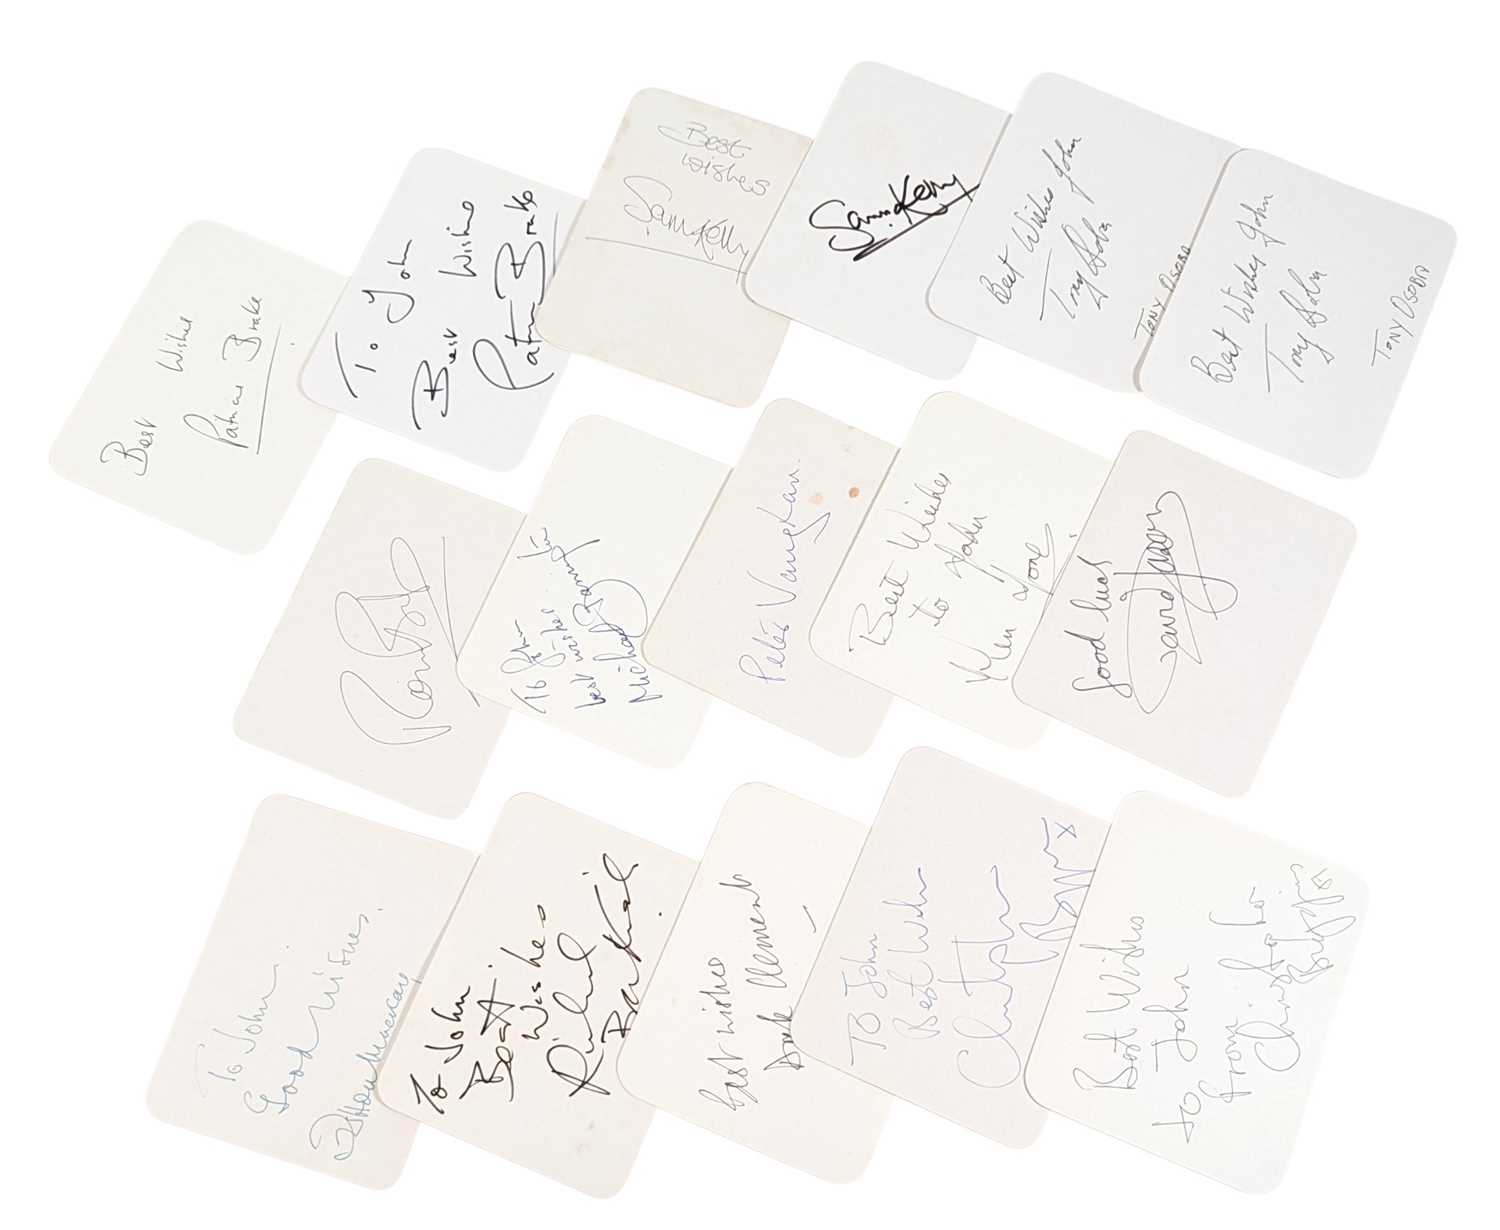 Best Wishes
Patricia Brake
To John
Best Wishes
Patricia Brake
Best
wishes
Sam Kelly
Sam Kelly
Best Wishes John
Tony Osoba
TONY OSOBA
Best Wishes John
Tony Osoba
TONY OSOBA
To John
best wishes
Michael Barrington
Peter Vaughan.
Best Wishes
to John
Ken Jones
Good luck
David Jason
To John.
Good wishes,
Fulton Mackay
To John
Best
Wishes
Richard
Beckinsale
Best wishes
Dick Clement
TO John
Best Wishes
Christopher
Biggins x
Best Wishes
to John
from
Christopher
Biggins